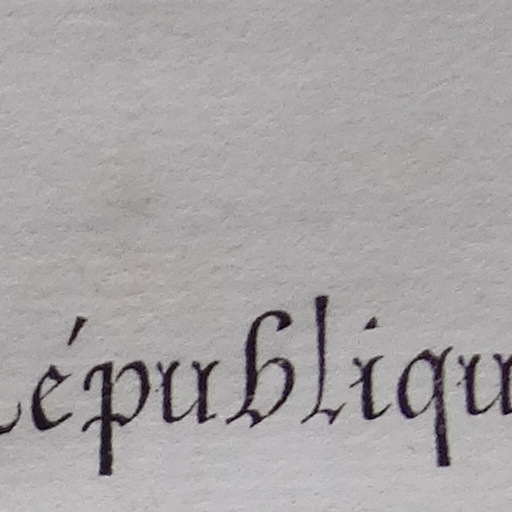 républiqu